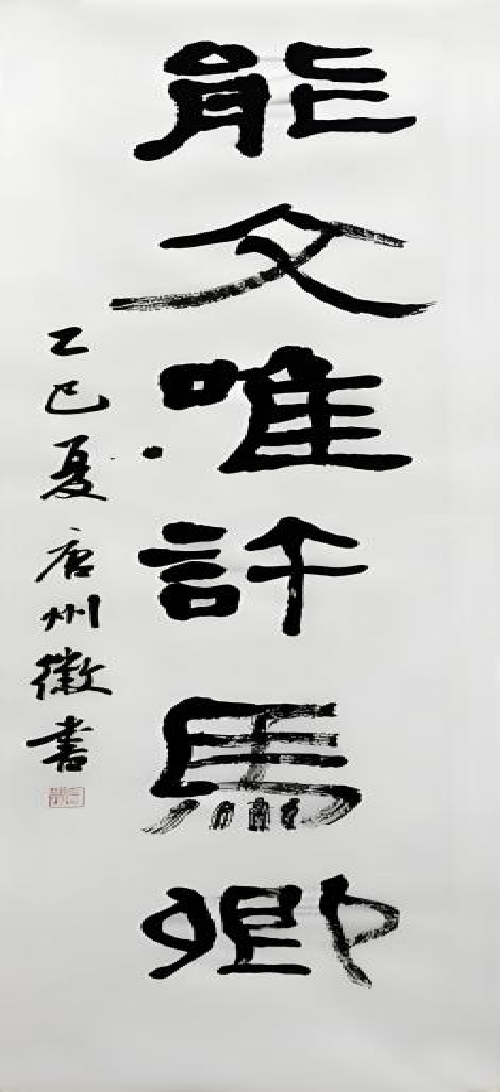 能文唯許馬卿
乙巳夏唐州徽書